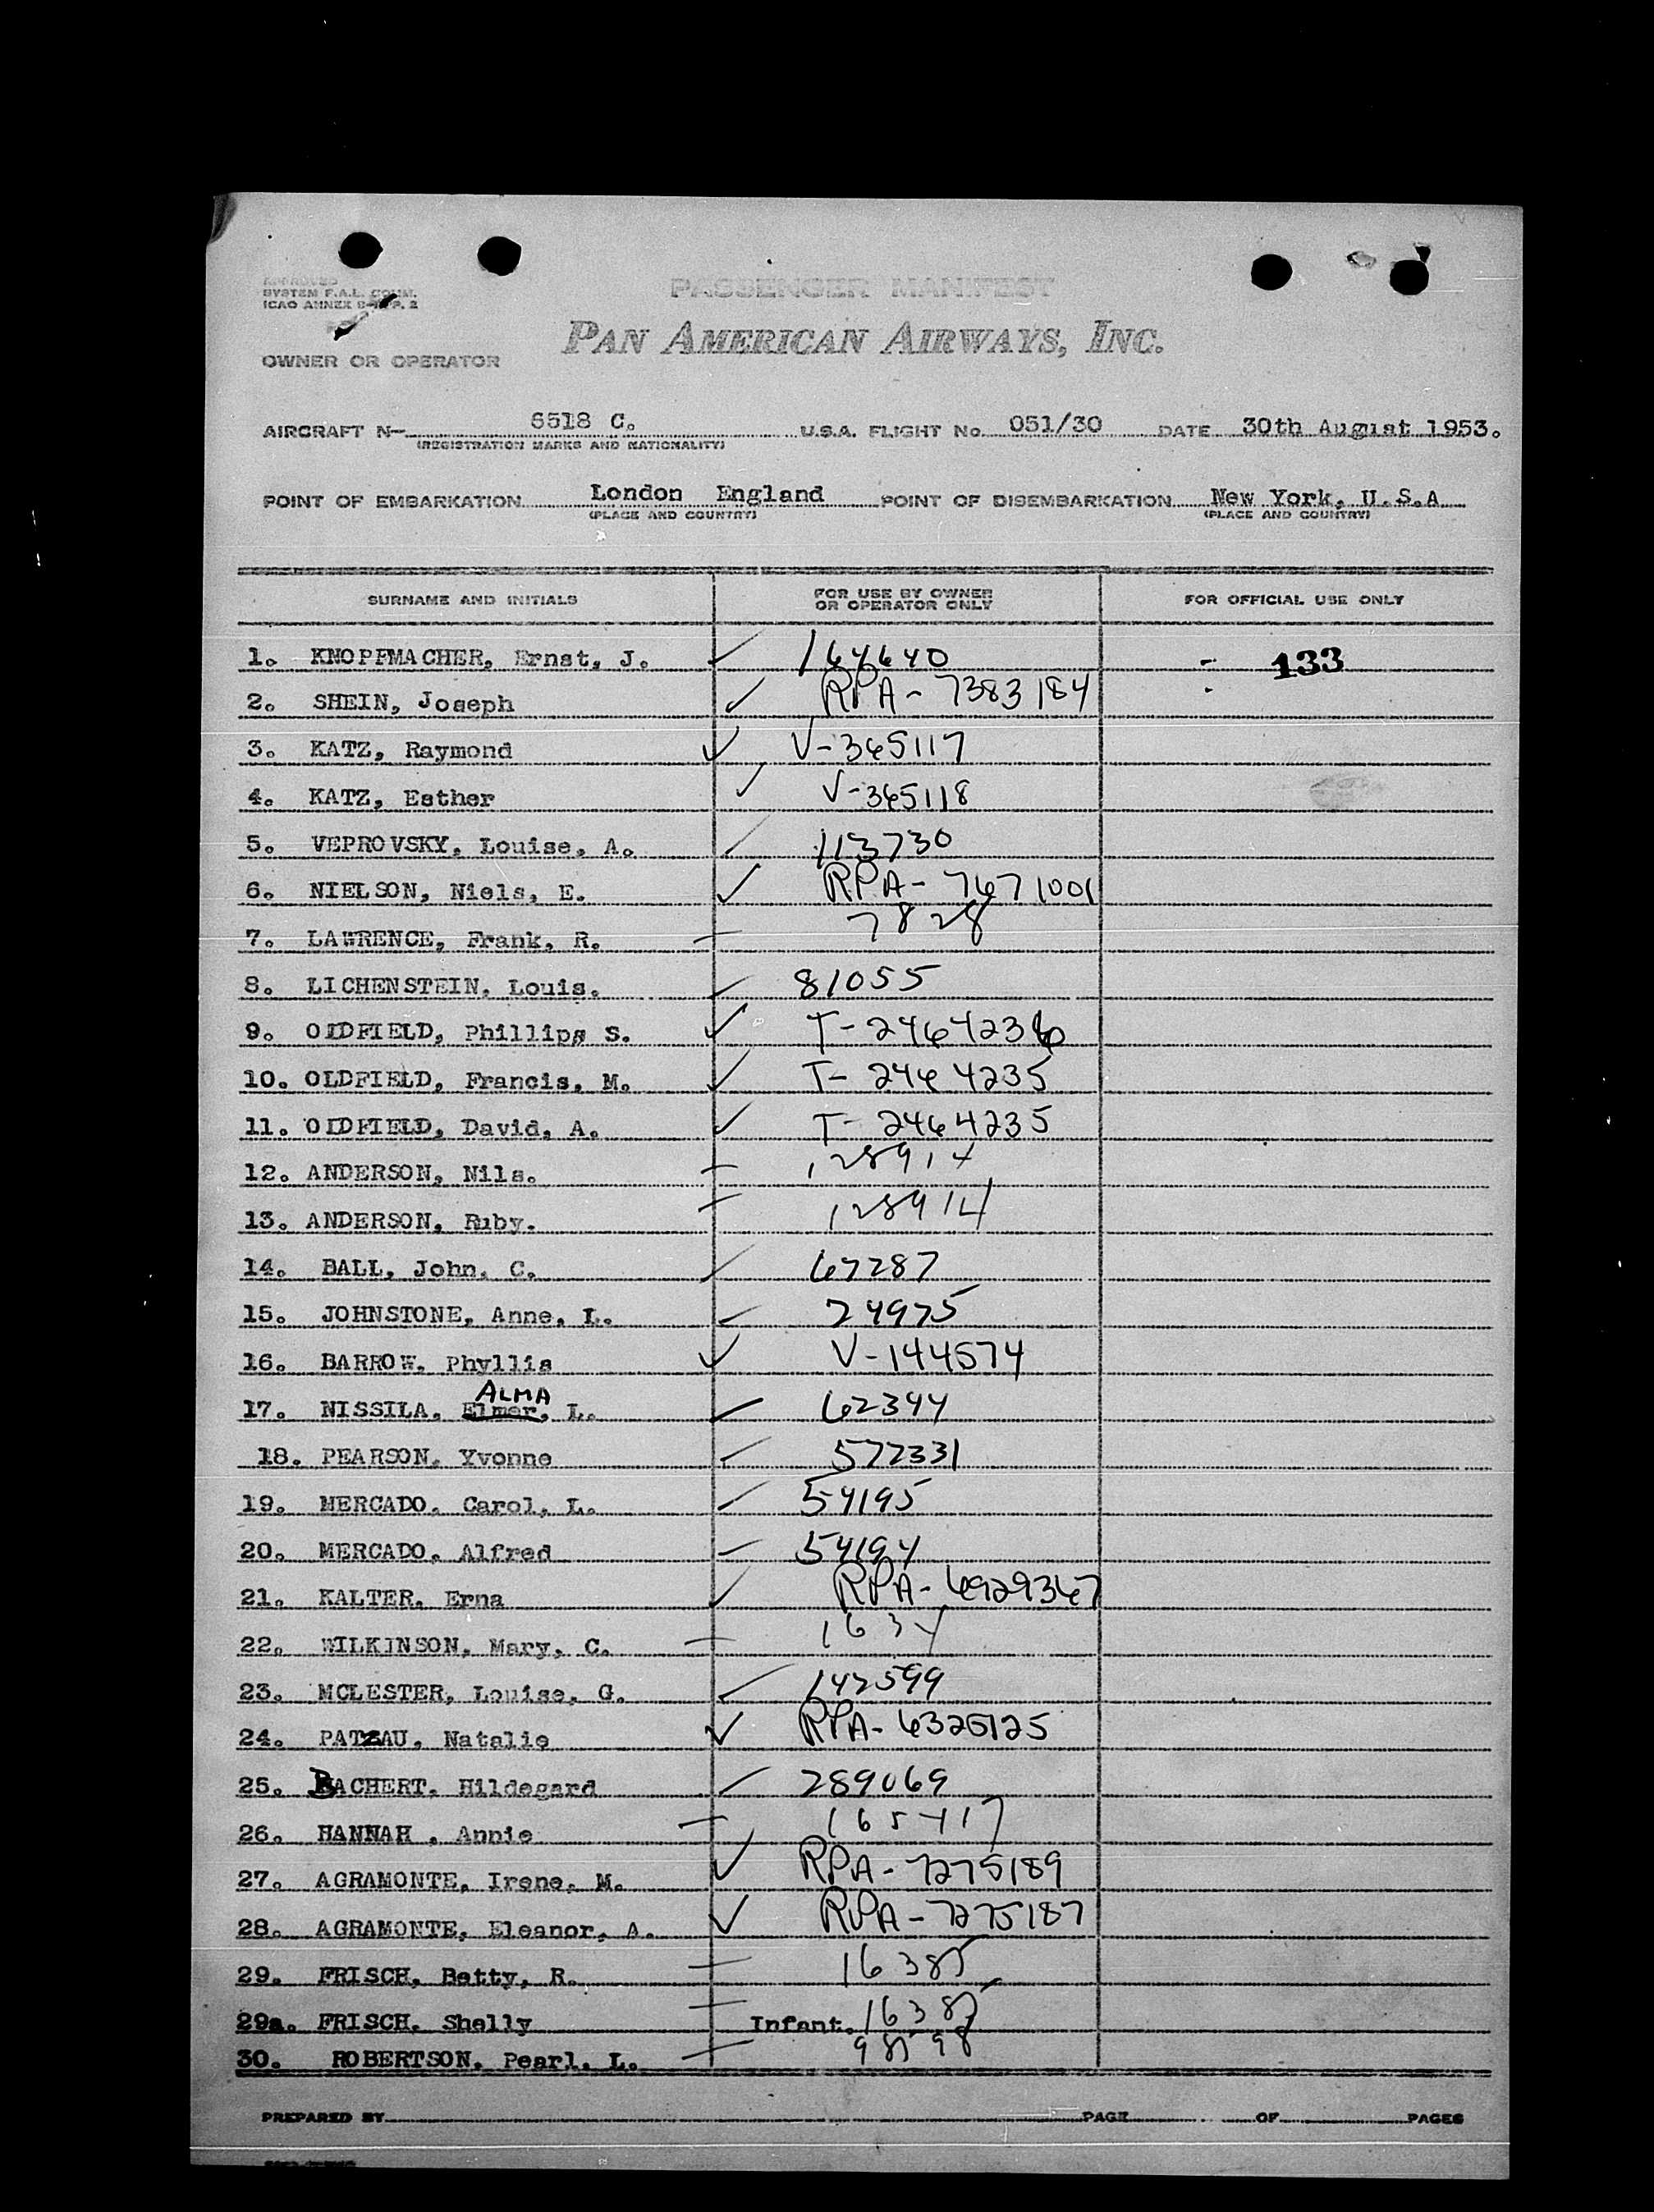 APPROVED
SYSTEM F.A.L. COMM.
ICAO ANNEX 9-APP. 2
PASSENGER MANIFEST
PAN AMERICAN AIRWAYS, INC.
OWNER OR OPERATOR
AIRCRAFT N- 6518 C. U.S.A. FLIGHT No. 051/30 DATE 30th August 1953.
(REGISTRATION MARKS AND NATIONALITY)
POINT OF EMBARKATION London England POINT OF DISEMBARKATION New York, U.S.A
(PLACE AND COUNTRY) (PLACE AND COUNTRY)
SURNAME AND INITIALS FOR USE BY OWNER OR OPERATOR ONLY FOR OFFICIAL USE ONLY
1. KNOPFMACHER, Ernst, J. ✓ 164640 - 133
2. SHEIN, Joseph ✓ RPA-7383184
3. KATZ, Raymond ✓ V-365117
4. KATZ, Esther ✓ V-365118
5. VEPROVSKY, Louise, A. ✓ 113730
6. NIELSON, Niels, E. ✓ RPA-7671001
7. LAWRENCE, Frank, R. - 7828
8. LICHENSTEIN, Louis. ✓ 81055
9. OLDFIELD, Phillips S. ✓ T-2464236
10. OLDFIELD, Francis, M. ✓ T-2464235
11. OLDFIELD, David, A. ✓ T-2464235
12. ANDERSON, Nils. - 128914
13. ANDERSON, Ruby. - 128914
14. BALL, John, C. ✓ 67287
15. JOHNSTONE, Anne, L. ✓ 24975
16. BARROW, Phyllis ✓ V-144574
ALMA
17. NISSILA, Elmer, L. ✓ 62344
18. PEARSON, Yvonne ✓ 572331
19. MERCADO, Carol, L. ✓ 54195
20. MERCADO, Alfred ✓ 54194
21. KALTER, Erna ✓ RPA-6929367
22. WILKINSON, Mary, C. - 1634
23. MCLESTER, Louise, G. ✓ 142599
24. PATZAU, Natalie ✓ RPA-6325125
25. BACHERT, Hildegard ✓ 289069
26. HANNAH, Annie - 165417
27. AGRAMONTE, Irene, M. ✓ RPA-7275189
28. AGRAMONTE, Eleanor, A. ✓ RPA-7275187
29. FRISCH, Betty, R. - 16385
29a. FRISCH, Shelly - Infant. 16385
30. ROBERTSON, Pearl, L. - 98598
PREPARED BY PAGE OF PAGES